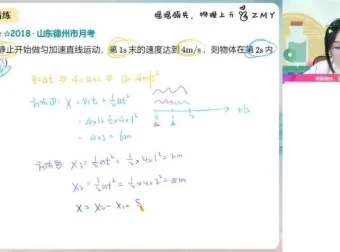 练
2018·山东德州市月考
静止开始做匀加速直线运动，第1s末的速度达到4m/s、则物体在第2s内
v=at ⇒ 4=a×1 ⇒ a=4m/s²
方法①: X=v₁t+½at²
=4×1+½×4×1²
=4+2=6m
t/s
方法② X₁=½at²=½×4×1²=2m
X₂=½at²=½×4×2²=8m
X=X₂-X₁=